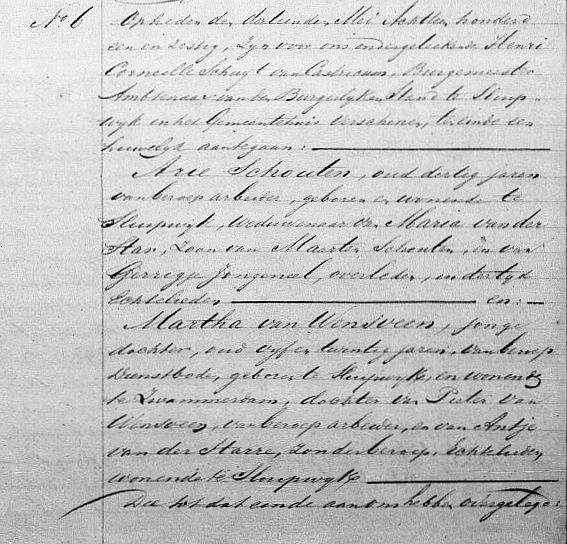 No 6 Op heden den Mei Achttien honderd
een en zestig, Zyn voor ons ondergeteekende Henri
Corneille Schuyt van Castricum, Burgemeester
Ambtenaar van den Burgerlyken Stand te Sluip=
wyk in het Gemeentehuis verschenen, ten einde een
huwelyk aantegaan:
Arie Schouten, oud dertig jaren
van beroep arbeider, geboren en wonende te
Sluipwyk, weduwenaar van Maria van der
Zoon van Maarten Schouten, en van
Gerrigje Jongeneel, overleden, in der tyd
Echtelieden en:
Martha van Wensveen, jonge
dochter, oud vyf en twintig jaren, van beroep
Dienstbode, geboren te Sluipwyk, en wonende
te Zwammerdam, dochter van Pieter van
Wensveen, van beroep arbeider, en van Antje
van der Starre, zonder beroep, Echtelieden,
wonende te Sluipwyk
Die tot dat einde aan ons hebben overgelegd: